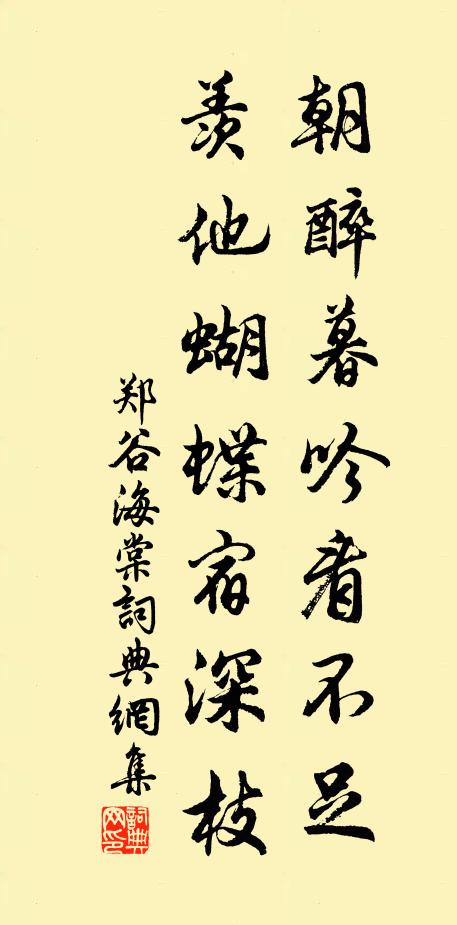 朝醉暮吟看不足
羡他蝴蝶宿深枝
郑谷海棠詞典網集
詞典網印